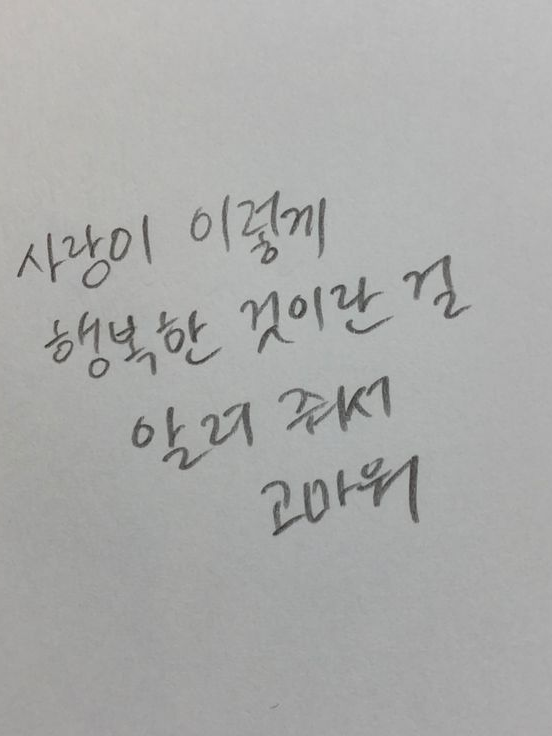 사랑이 이렇게
행복한 것이란 걸
알려 줘서
고마워